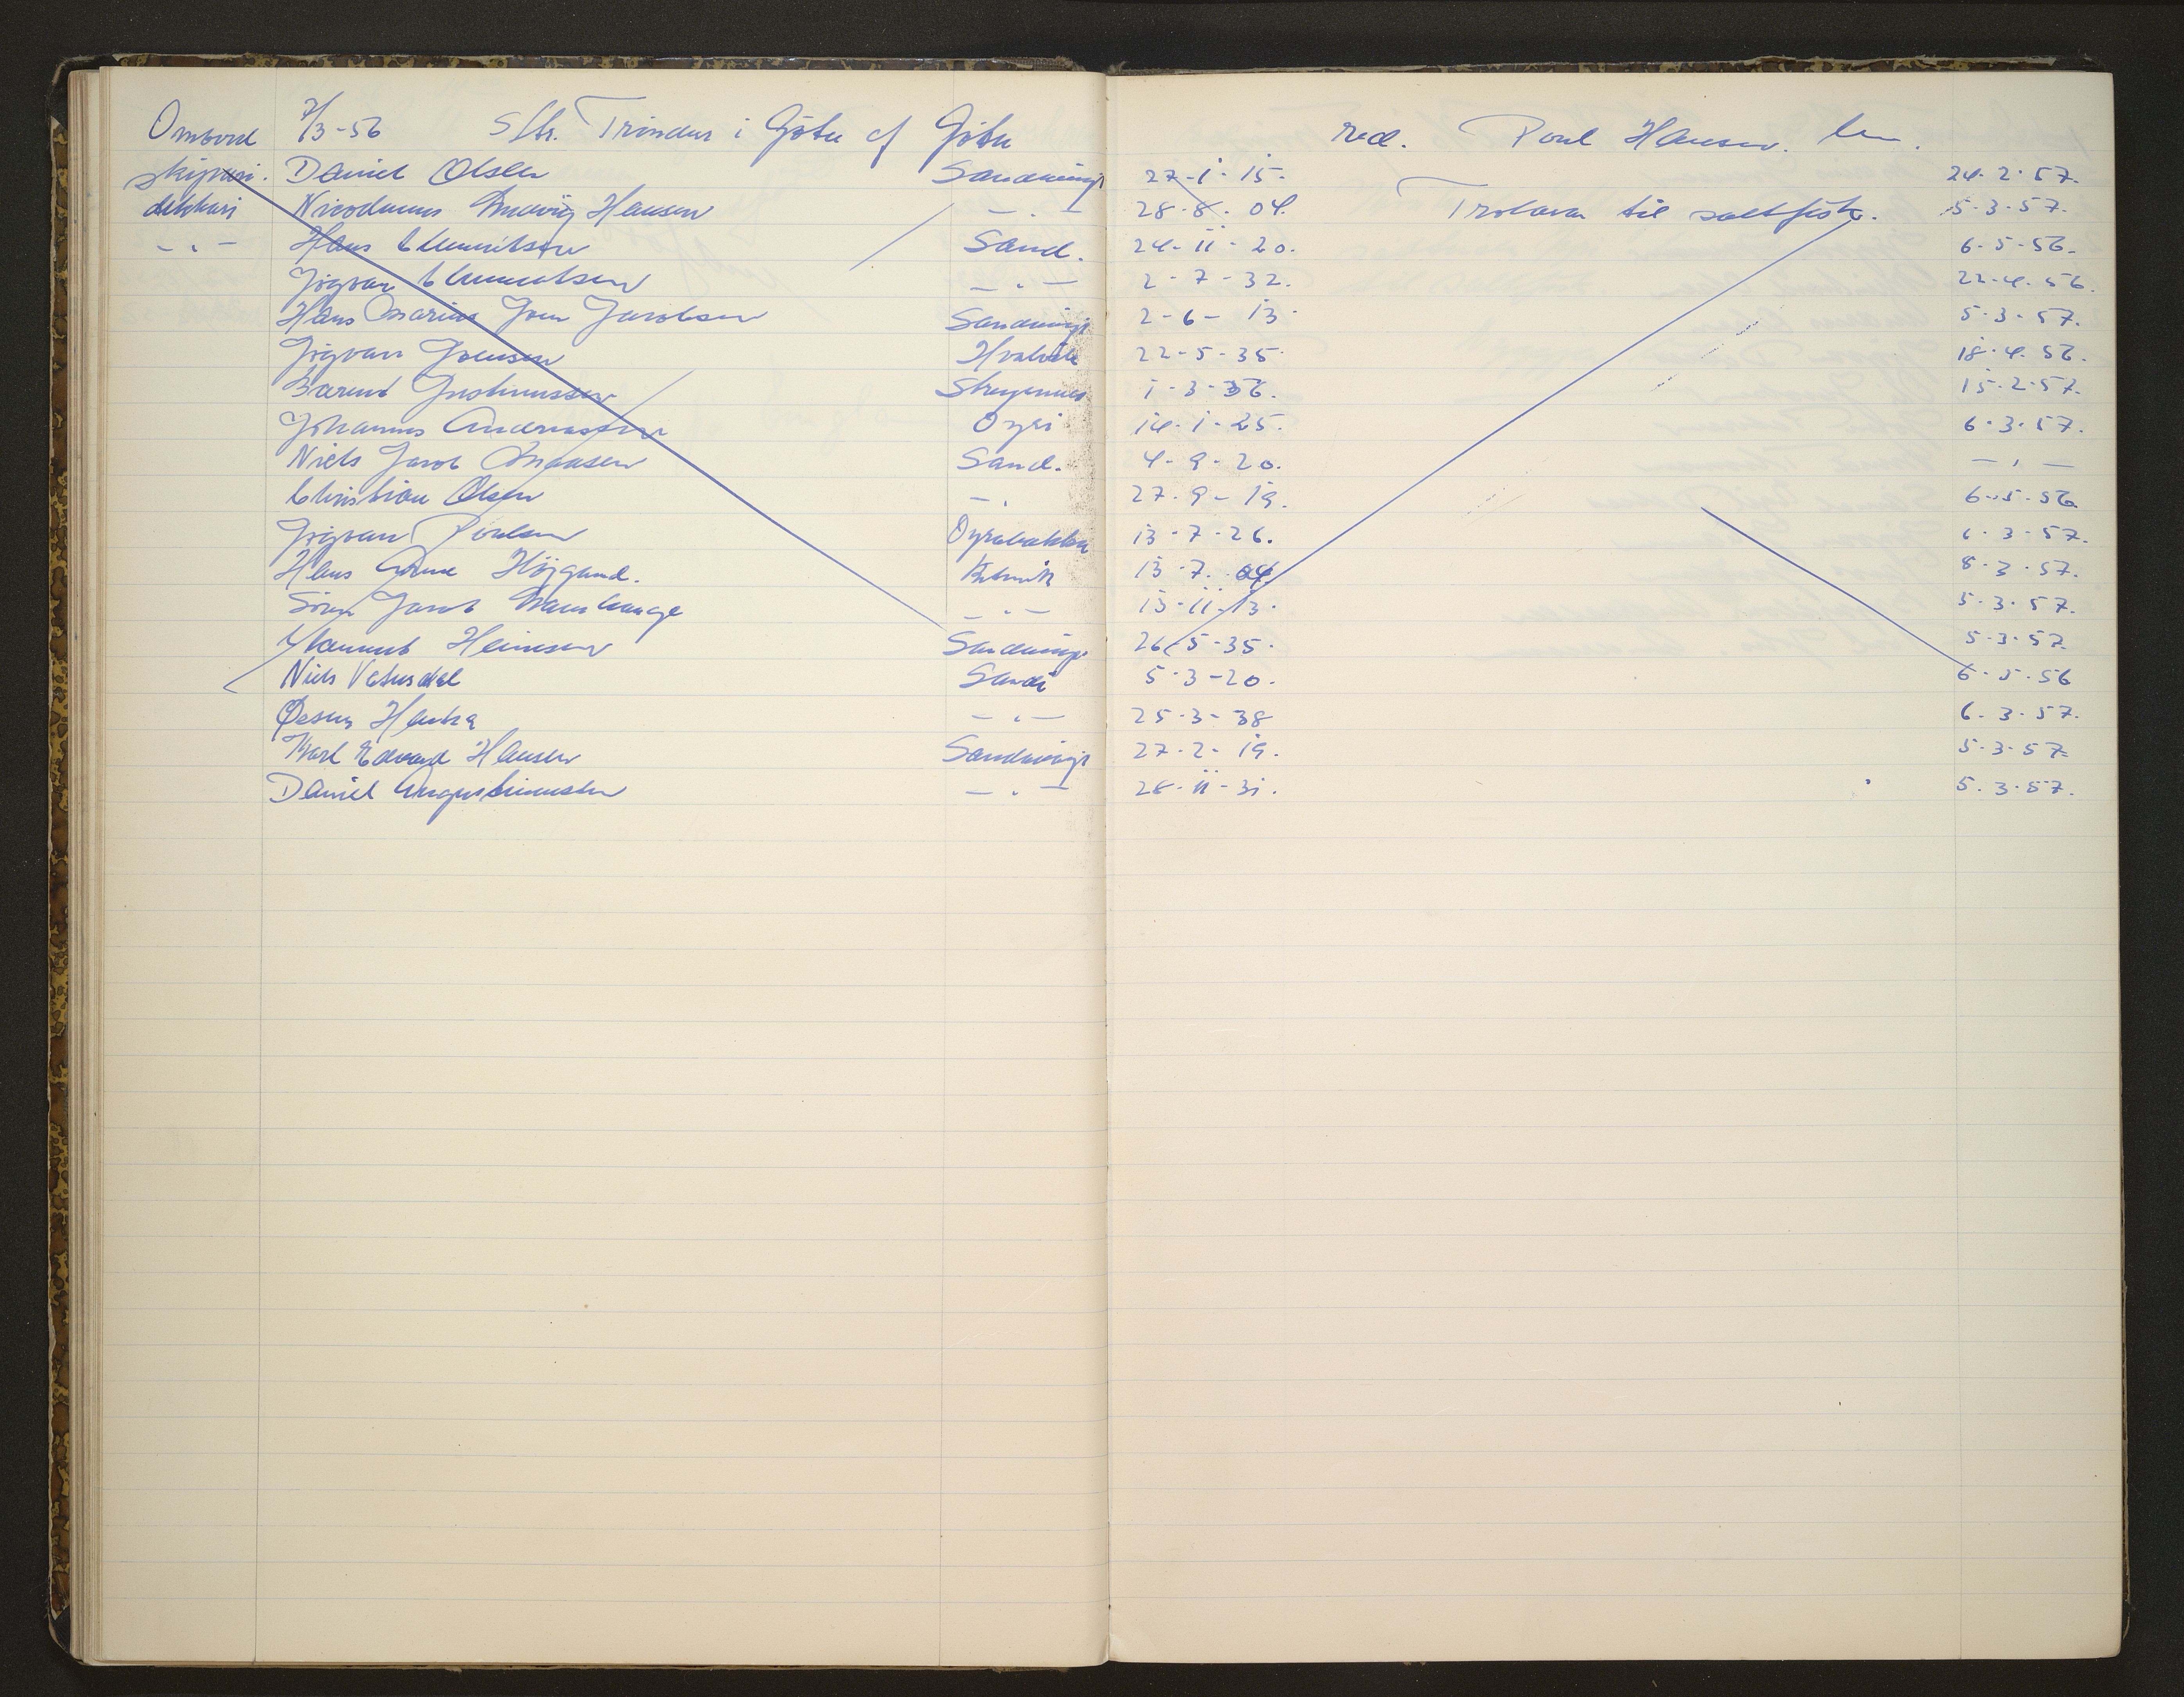 Ombord 7/3-56 Sltr. Trindur i Gøtu af Gøtu red. Poul Hansen.
skipari. Daniel Olsen Sandvági 27-1-15. 24.2.57.
dekkari Nicodemus Ludvig Hansen — " — 28-8-04. Trolarar til saltfisk. 5.3.57.
— " — Hans Clementsen Sand. 24-11-20. 6-5-56.
Jógvan Clementsen — " — 2-7-32. 22.4.56.
Hans Marius Joen Jacobsen Sandvági 2-6-13. 5.3.57.
Jógvan Joensen Hvalvík 22-5-35. 18.4.56.
Barend Justinussen Streymnes 1-3-36. 15.2.57.
Johannes Andreassen Oyri 14-1-25. 6.3.57.
Niels Jacob Sand. 4-9-20. — " —
Christian Olsen — " 27-9-19. 6-5-56
Jógvan Poulsen Oyrabakka 13-7-26. 6-3-57.
Hans Højgaard. 13-7-04. 8-3-57.
Søren Jacob — " — 13-11-13. 5-3-57.
Heinesen Sandvági 26-5-35. 5-3-57
Niels Vatnsdal Sandi 5-3-20. 6-5-56
Hentze — " — 25-3-38 6-3-57.
Karl Edvard Hansen Sandvági 27-2-19. 5-3-57
Daniel Augustinussen — " — 28-11-31. 5.3.57.